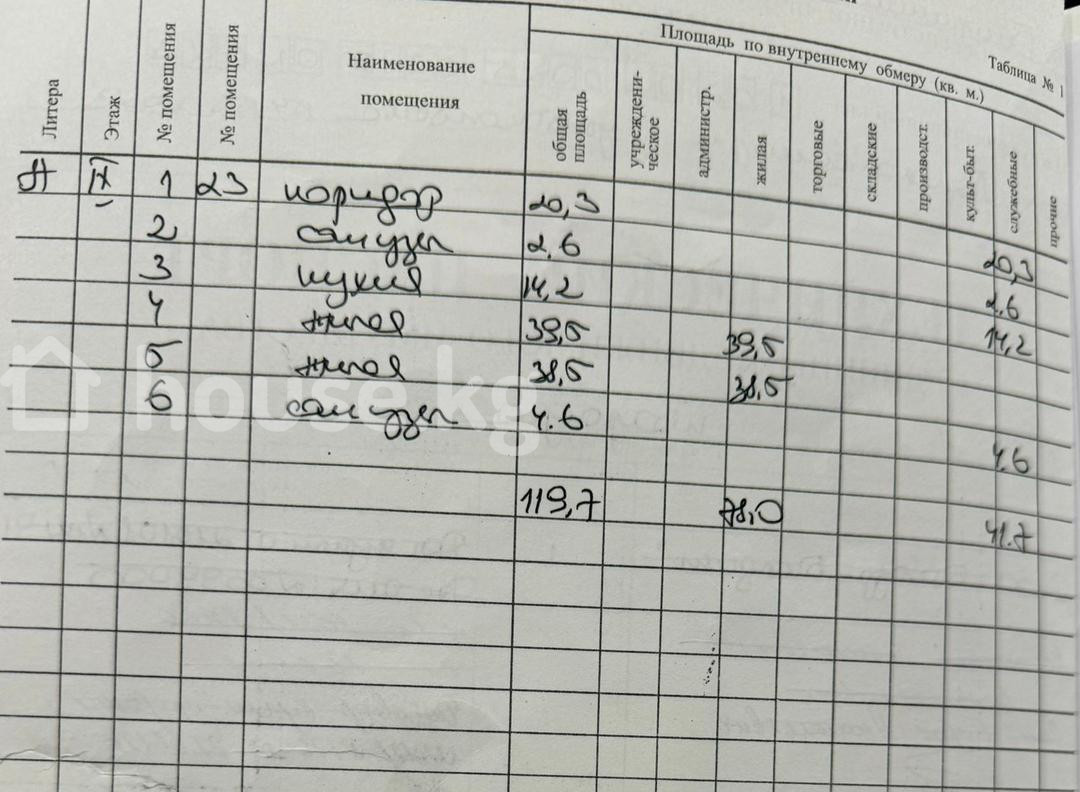 Таблица № 1
Площадь по внутреннему обмеру (кв. м.)
Литера
Этаж
№ помещения
№ помещения
Наименование
помещения
общая
площадь
учреждени-
ческое
администр.
жилая
торговые
складские
производст.
культ-быт.
служебные
прочие
А IX 1 23 коридор 20,3 20,3
2 санузел 2,6 2,6
3 кухня 14,2 14,2
4 жилая 39,5 39,5
5 жилая 38,5 38,5
6 санузел 4.6 4,6
119,7 78,0 41.7
house.kg